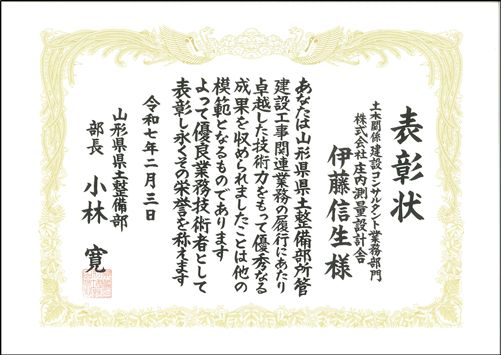 表彰状
土木関係建設コンサルタント業務部門
株式会社庄内測量設計舎
伊藤信生様
あなたは山形県県土整備部所管
建設工事関連業務の履行にあたり
卓越した技術力をもって優秀なる
成果を収められましたことは他の
模範となるものであります
よって優良業務技術者として
表彰し永くその栄誉を称えます
令和七年二月三日
山形県県土整備部
部長 小林 寛